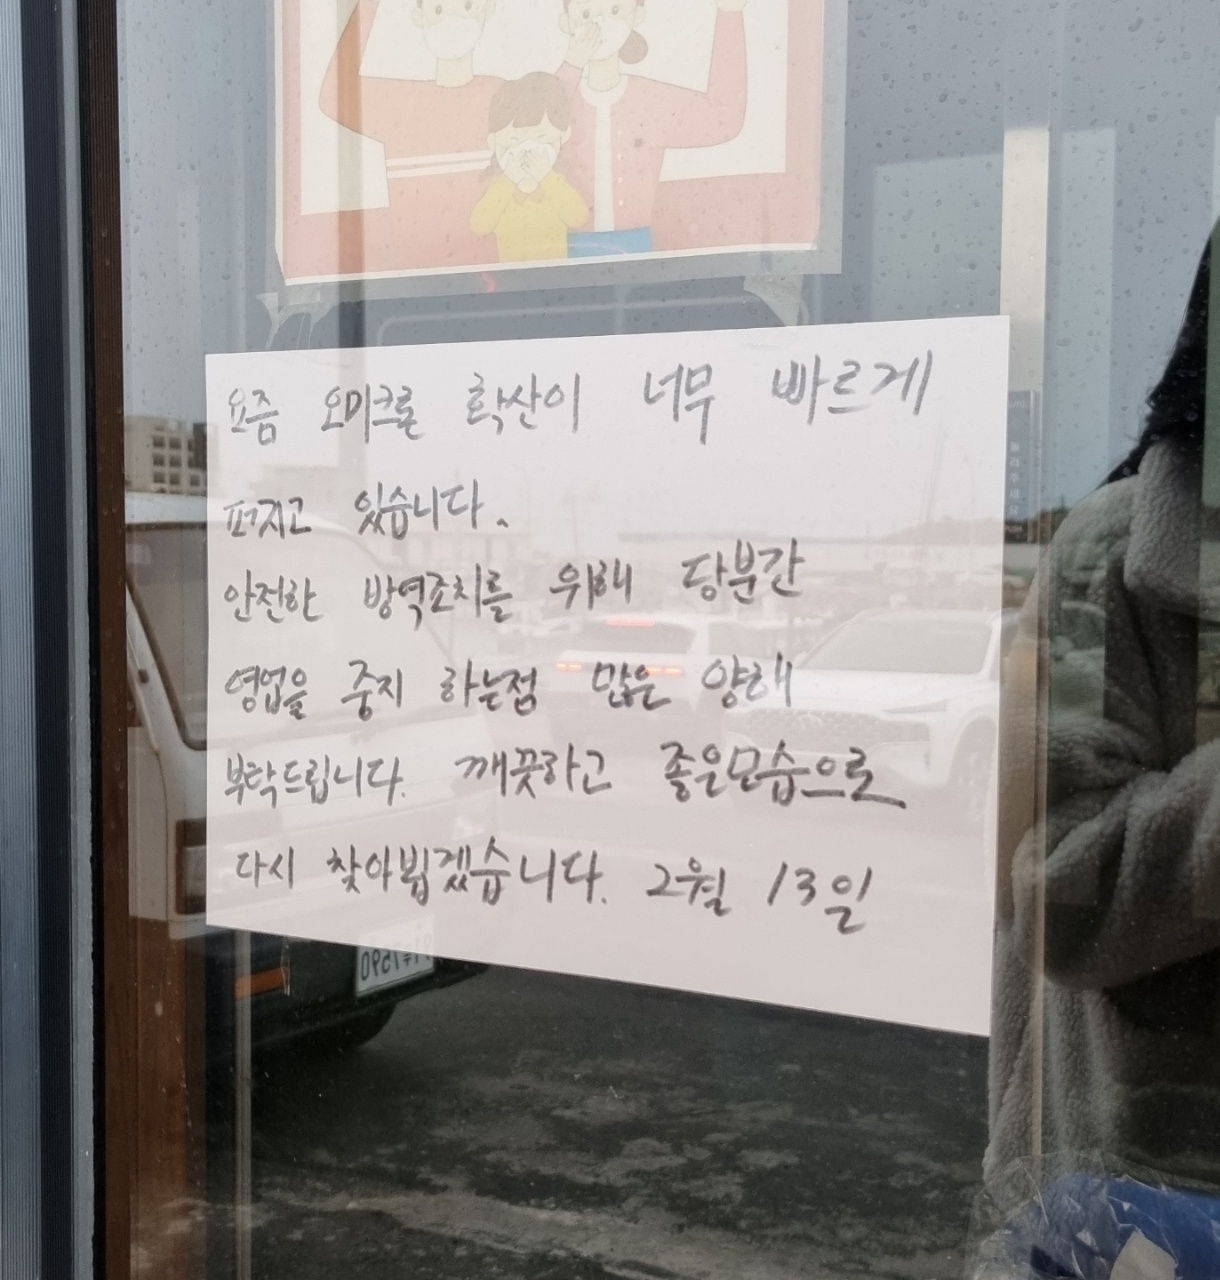 요즘 오미크론 확산이 너무 빠르게
퍼지고 있습니다.
안전한 방역조치를 위해 당분간
영업을 중지 하는점 많은 양해
부탁드립니다. 깨끗하고 좋은모습으로
다시 찾아뵙겠습니다. 2월 13일